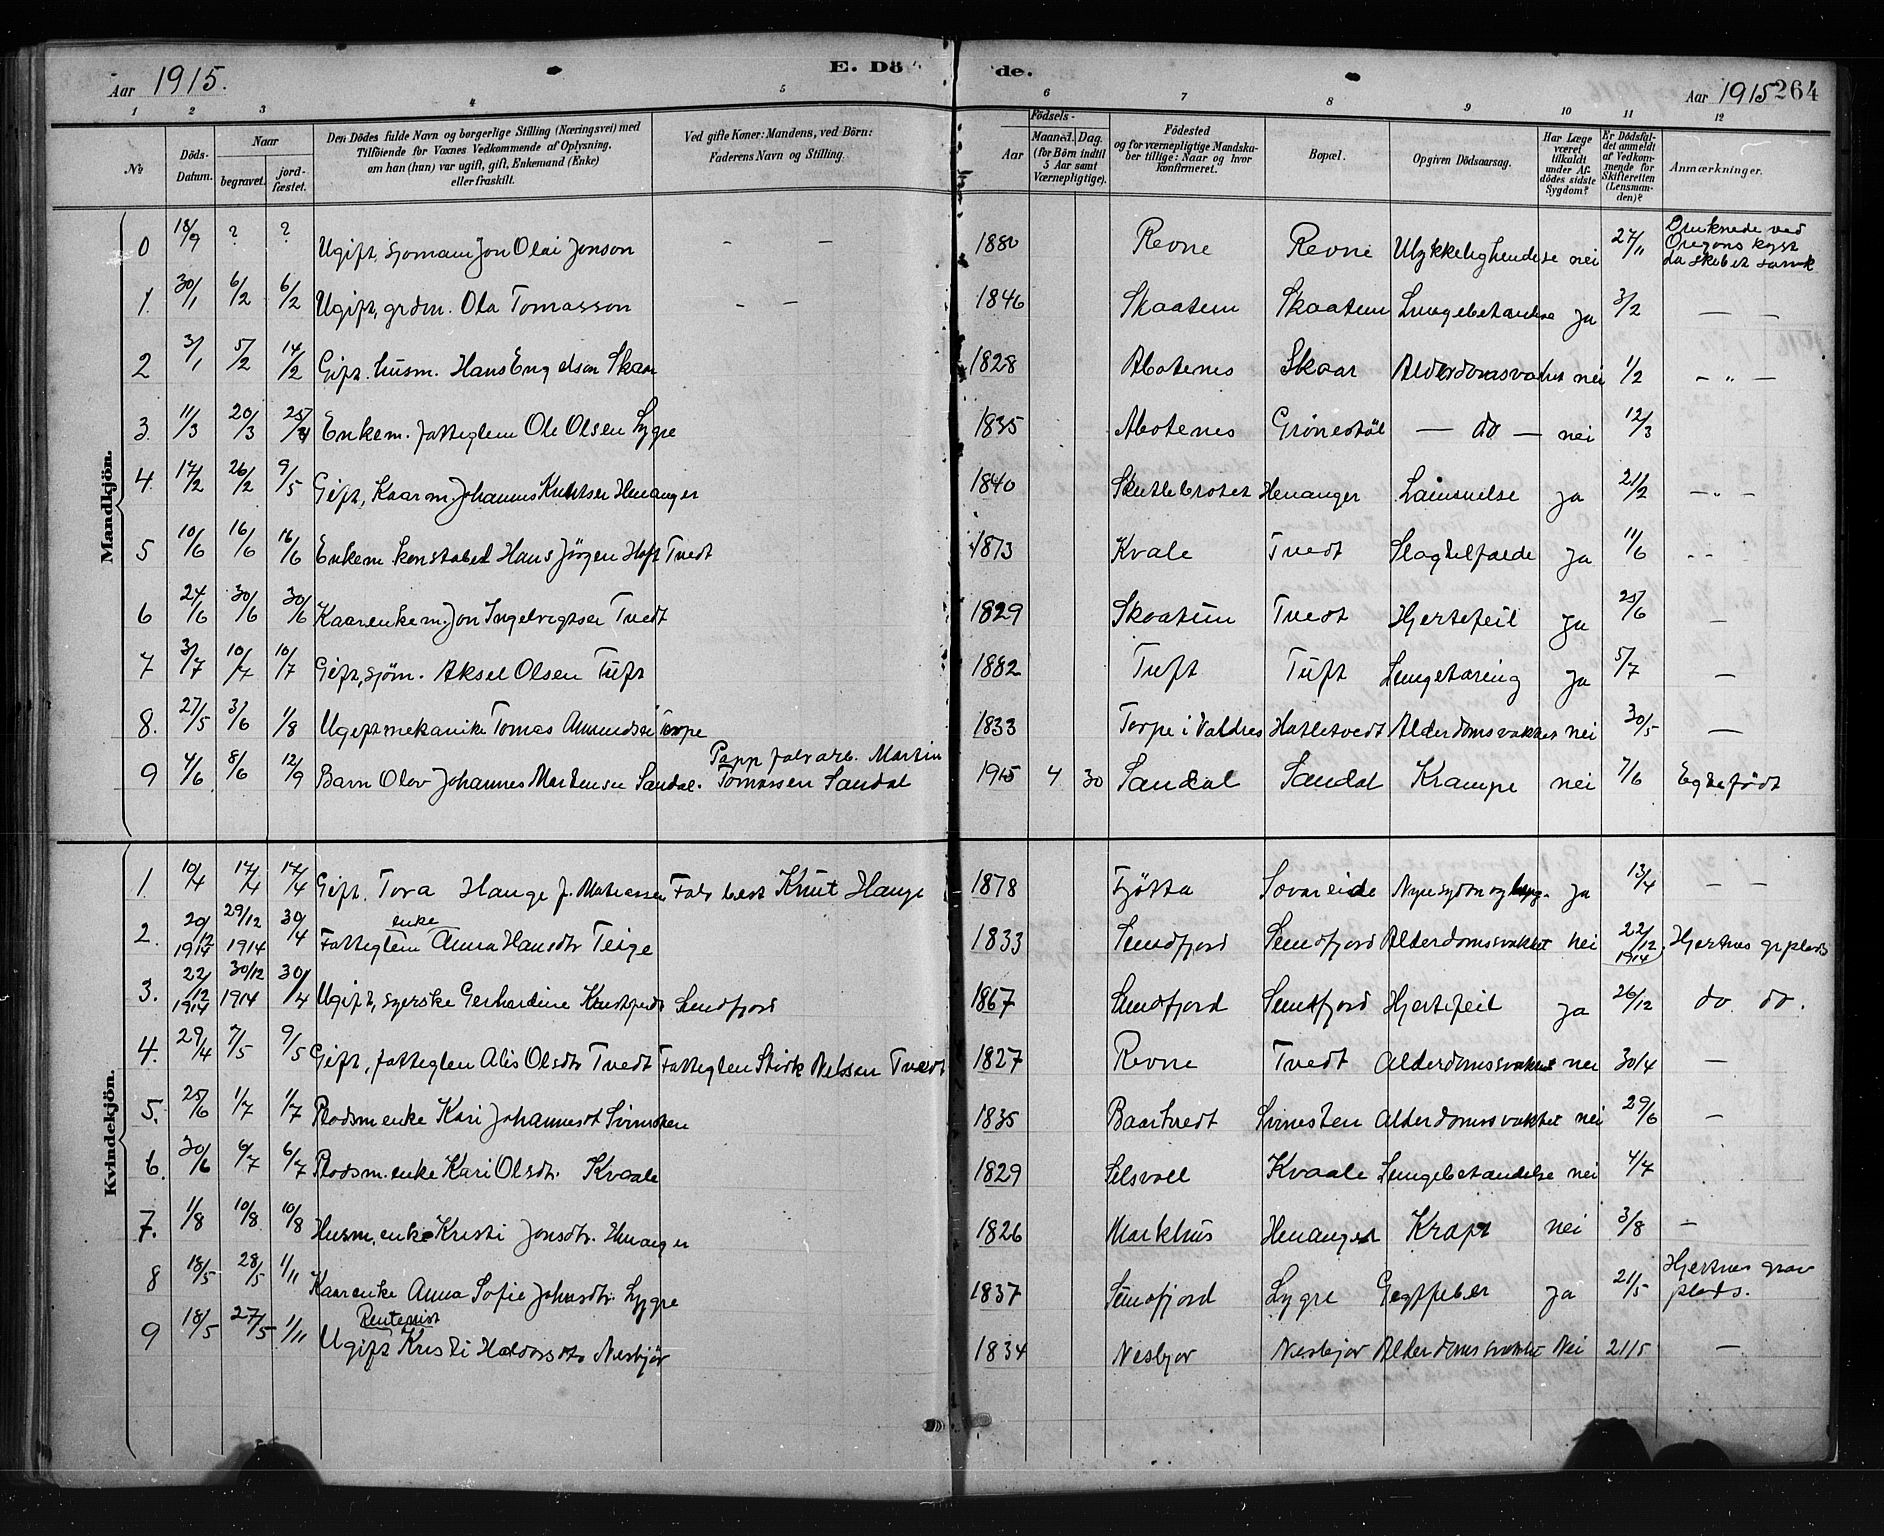 Aar 1915. E. Dö de. Aar 1915 264
1 2 3 4 5 6 7 8 9 10 11 12
No Döds-Datum. Naar begravet. jord-fæstet. Den Dödes fulde Navn og borgerlige Stilling (Næringsvei) med Tilföiende for Voxnes Vedkommende af Oplysning, om han (hun) var ugift, gift, Enkemand (Enke) eller fraskilt. Ved gifte Koner: Mandens, ved Börn: Faderens Navn og Stilling. Födsels- Aar Maaned. Dag. (for Börn indtil 5 Aar samt Værnepligtige). Födested og for værnepligtige Mandskaber tillige: Naar og hvor konfirmeret. Bopæl. Opgiven Dödsaarsag. Har Læge været tilkaldt under Afdödes sidste Sygdom? Er Dödsfaldet anmeldt af Vedkommende for Skifteretten (Lensmanden)? Anmærkninger.
Mandkjön.
0 18/9 ? ? Ugift, sjomann Jon Olai Jonson - - 1880 Revne Revne Ulykkelighendelse nei 27/11 Druknede ved Oregons kyst da skibet sank
1. 30/1 6/2 6/2 Ugift, grdm. Ola Tomasson - - 1846 Skaatun Skaatun Lungebetendelse ja 3/2 - -
2 3/1 5/2 14/2 Gift. husm. Hans Engelson Skaar 1828 Abotenes Skaar Alderdomssvakhet nei 1/2 - " -
3. 11/3 20/3 25/4 Enkem. fatteglem Ole Olsen Lygre 1835 Abotenes Grönestöl - do - nei 12/3
4. 17/2 26/2 9/5 Gift, Kaarm. Johannes Knutsen Henanger 1840 Skutlebrotet Henanger Lamsnelse ja 21/2 - " -
5 10/6 16/6 16/6 Enkem konstabel Hans Jörgen Hoft Tvedt 1873 Kvale Tvedt Slagtilfælde ja 11/6 - -
6 24/6 30/6 30/6 Kaarenkem. Jon Ingelvigtsen Tvedt 1829 Skoatun Tvedt Hjertefeil ja 25/6 -
7 3/7 10/7 10/7 Gift, sjöm. Aksel Olsen Tuft 1882 Tuft Tuft Lungetæring ja 5/7 -
8. 27/5 3/6 1/8 Ugift mekanike Tomas Amundsen Torpe 1833 Torpe i Valdres Hatletvedt Alderdomssvakhet nei 30/5 -
9 4/6 8/6 12/9 Barn Olav Johannes Martinsen Sandal. Papp fabr arb. Martin Tomassen Sandal 1915 4 30 Sandal Sandal Krampe nei 7/6 Egtefödt
Kvindekjön.
1. 10/4 17/4 17/4 Gift. Tora Hauge f. Matiassen Fabr best Knut Hauge 1878 Tjötta Sovareide Nyresygdom og ja 13/4 - -
2. 20/12 1914 29/12 1914 30/4 Fatteglem enke Anna Hansdtr Teige 1833 Sundfjord Sundfjord Alderdomssvakhet nei 22/12 1914 Hjertnes grplads
3. 22/12 1914 30/12 1914 30/4 Ugift, syerske Gerhardine Sundfjord 1867 Sundfjord Sundfjord Hjertefeil ja 26/12 do do.
4. 29/4 7/5 9/5 Gift, fatteglem Alis Olsdtr Tvedt Fatteglem Nelssen Tvedt 1827 Revne Tvedt Alderdomssvakhet nei 30/4 -
5. 25/6 1/7 1/7 Plodsm enke Kari Johannesdt Svinesten 1835 Baartvedt Svinesten Alderdomssvakhet nei 29/6 -
6. 30/6 6/7 6/7 Plodsm. enke Kari Olsdtr. Kvaale 1829 Selsvoll Kvaale Lungebetendelse nei 4/7
7. 1/8 10/8 10/8 Husm. enke Kristi Jonsdtr. Henanger 1826 Markhus Henanger Kræft nei 3/8 -
8 18/5 28/5 1/11 Kaarenke Anna Sofie Johnsdtr. Lygre 1837 Sundfjord Lygre ja 21/5 Hjertnes grav plads.
9 18/5 27/5 1/11 Rentenist Ugift Kristi Haldorsdtr Nesbjör 1834 Nesbjor Nesbjor Alderdomssvakhet Nei 21/5 -